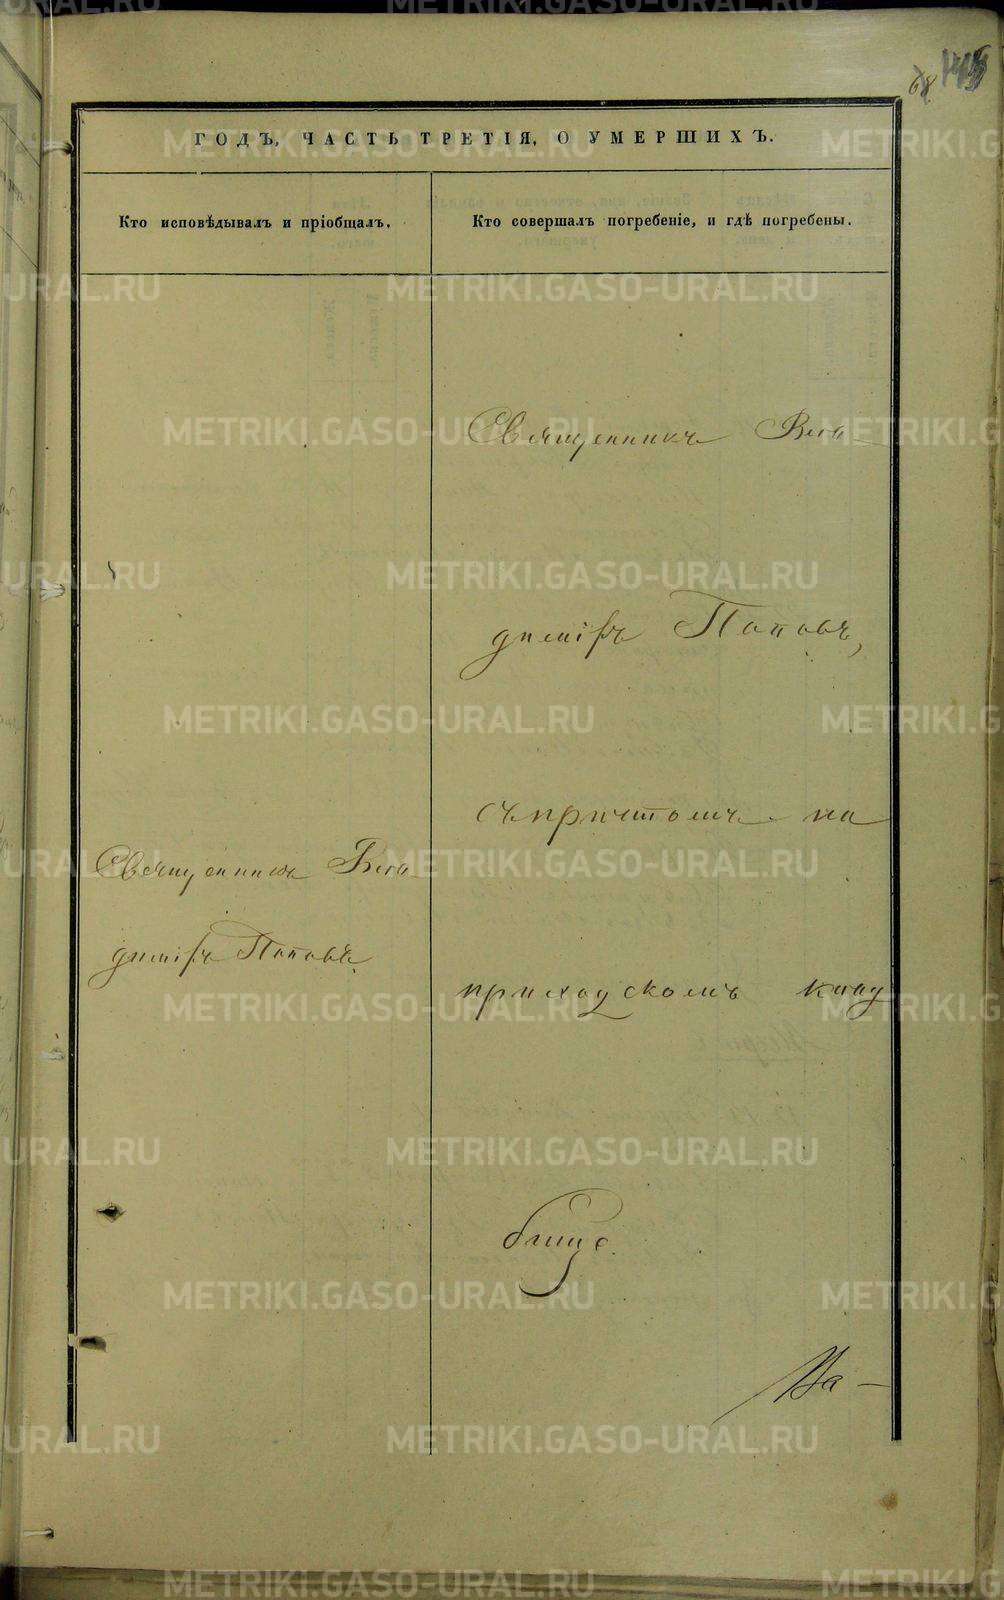 68
ГОДЪ, ЧАСТЬ ТРЕТІЯ, О УМЕРШИХЪ.
Кто исповѣдывалъ и пріобщалъ.
Кто совершалъ погребеніе, и гдѣ погребены.
Священникъ Вла-
диміръ Поповъ,
съ причтомъ на
приходскомъ клад
бищѣ.
Священникъ Вла-
диміръ Поповъ.
METRIKI.GASO-URAL.RU